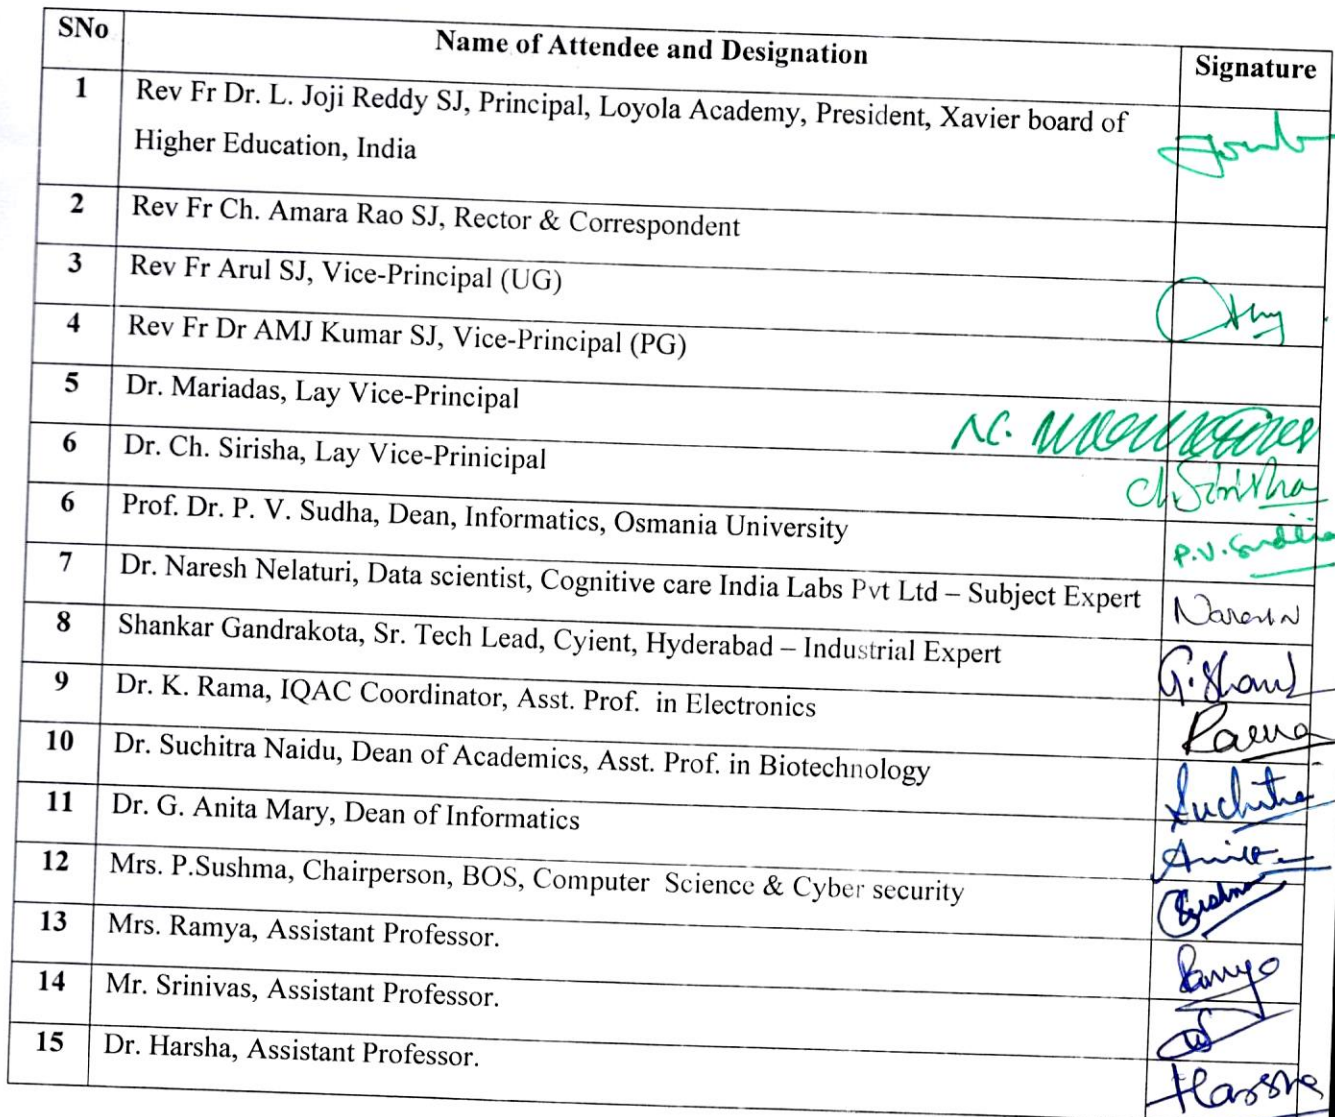 SNo Name of Attendee and Designation Signature
1 Rev Fr Dr. L. Joji Reddy SJ, Principal, Loyola Academy, President, Xavier board of
Higher Education, India
2 Rev Fr Ch. Amara Rao SJ, Rector & Correspondent
3 Rev Fr Arul SJ, Vice-Principal (UG)
4 Rev Fr Dr AMJ Kumar SJ, Vice-Principal (PG)
5 Dr. Mariadas, Lay Vice-Principal
6 Dr. Ch. Sirisha, Lay Vice-Prinicipal Ch. Sirisha
6 Prof. Dr. P. V. Sudha, Dean, Informatics, Osmania University P.V. Sudha
7 Dr. Naresh Nelaturi, Data scientist, Cognitive care India Labs Pvt Ltd – Subject Expert Naresh N
8 Shankar Gandrakota, Sr. Tech Lead, Cyient, Hyderabad – Industrial Expert
9 Dr. K. Rama, IQAC Coordinator, Asst. Prof. in Electronics Rama
10 Dr. Suchitra Naidu, Dean of Academics, Asst. Prof. in Biotechnology Suchitra
11 Dr. G. Anita Mary, Dean of Informatics
12 Mrs. P.Sushma, Chairperson, BOS, Computer Science & Cyber security
13 Mrs. Ramya, Assistant Professor. Ramya
14 Mr. Srinivas, Assistant Professor.
15 Dr. Harsha, Assistant Professor. Harsha